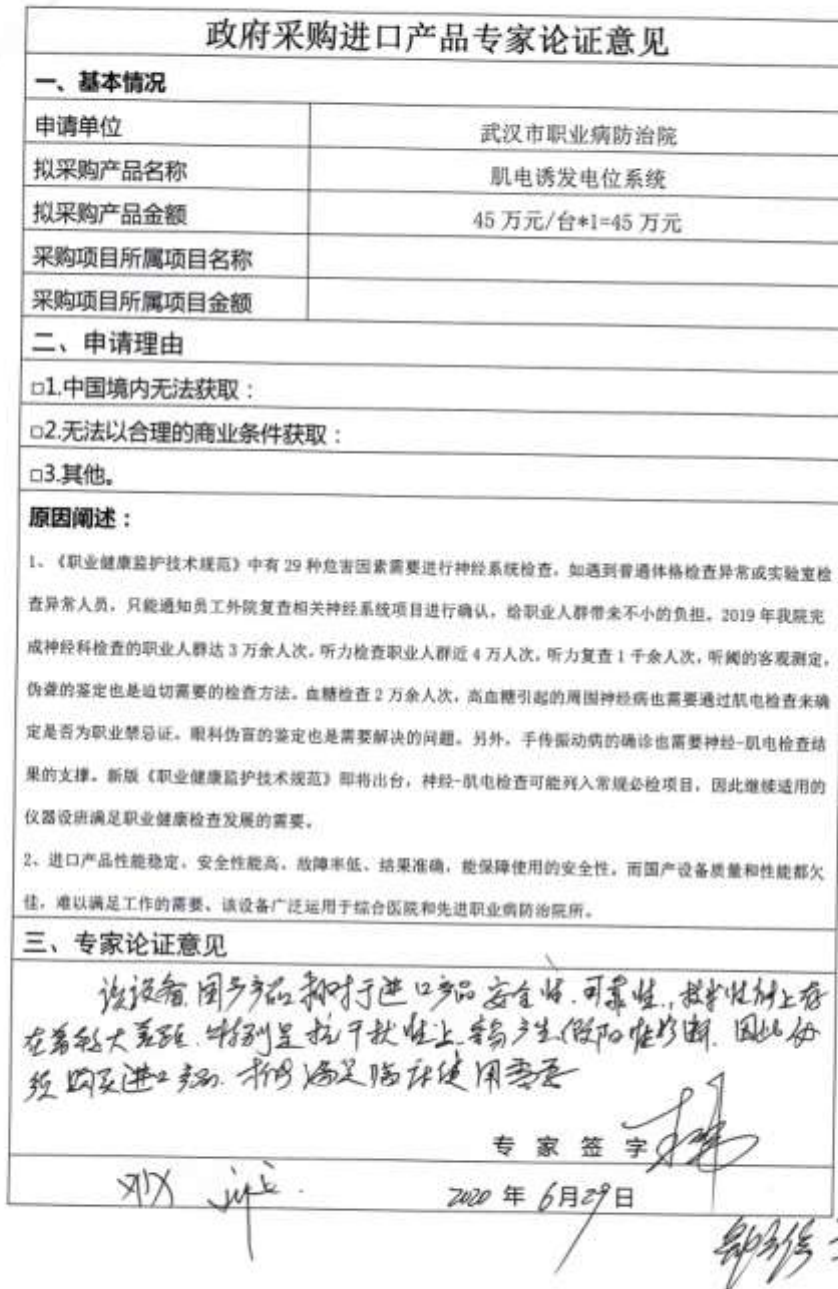 政府采购进口产品专家论证意见
一、基本情况
申请单位 武汉市职业病防治院
拟采购产品名称 肌电诱发电位系统
拟采购产品金额 45 万元/台*1=45 万元
采购项目所属项目名称
采购项目所属项目金额
二、申请理由
□1.中国境内无法获取：
□2.无法以合理的商业条件获取：
□3.其他。
原因阐述：
1、《职业健康监护技术规范》中有 29 种危害因素需要进行神经系统检查，如遇到普通体格检查异常或实验室检
查异常人员，只能通知员工外院复查相关神经系统项目进行确认，给职业人群带来不小的负担。2019 年我院完
成神经科检查的职业人群达 3 万余人次，听力检查职业人群近 4 万人次，听力复查 1 千余人次，听阈的客观测定，
伪聋的鉴定也是迫切需要的检查方法。血糖检查 2 万余人次，高血糖引起的周围神经病也需要通过肌电检查来确
定是否为职业禁忌证。眼科伪盲的鉴定也是需要解决的问题。另外，手传振动病的确诊也需要神经-肌电检查结
果的支撑。新版《职业健康监护技术规范》即将出台，神经-肌电检查可能列入常规必检项目，因此继续适用的
仪器设班满足职业健康检查发展的需要。
2、进口产品性能稳定、安全性能高、故障率低、结果准确，能保障使用的安全性。而国产设备质量和性能都欠
佳，难以满足工作的需要、该设备广泛运用于综合医院和先进职业病防治院所。
三、专家论证意见
该设备国产产品相对于进口产品安全性、可靠性、技术性能上存
在着较大差距，特别是抗干扰性上，易产生假阳性诊断，因此必
须购买进口产品，才能满足临床使用需要
专 家 签 字
2020 年 6月29日